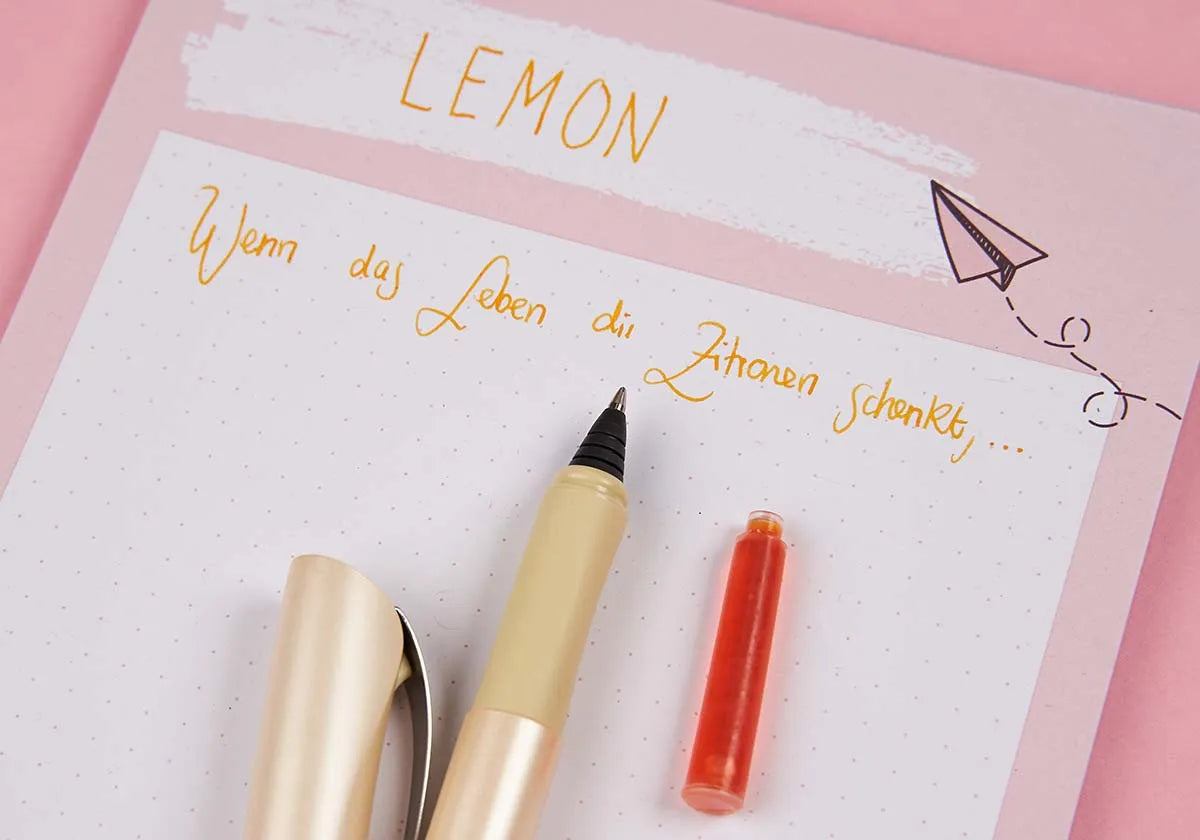 LEMON
Wenn das Leben dir Zitronen schenkt,....